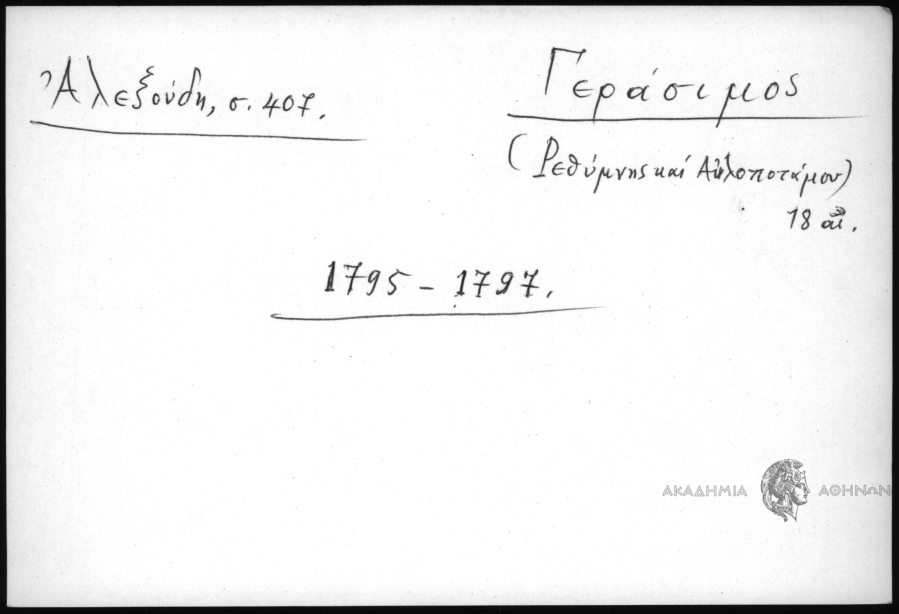 Ἀλεξούδη, σ. 407.
Γεράσιμος
(Ρεθύμνης καί Αὐλοποτάμου)
18 αἰ.
1795 - 1797.
ΑΚΑΔΗΜΙΑ ΑΘΗΝΩΝ